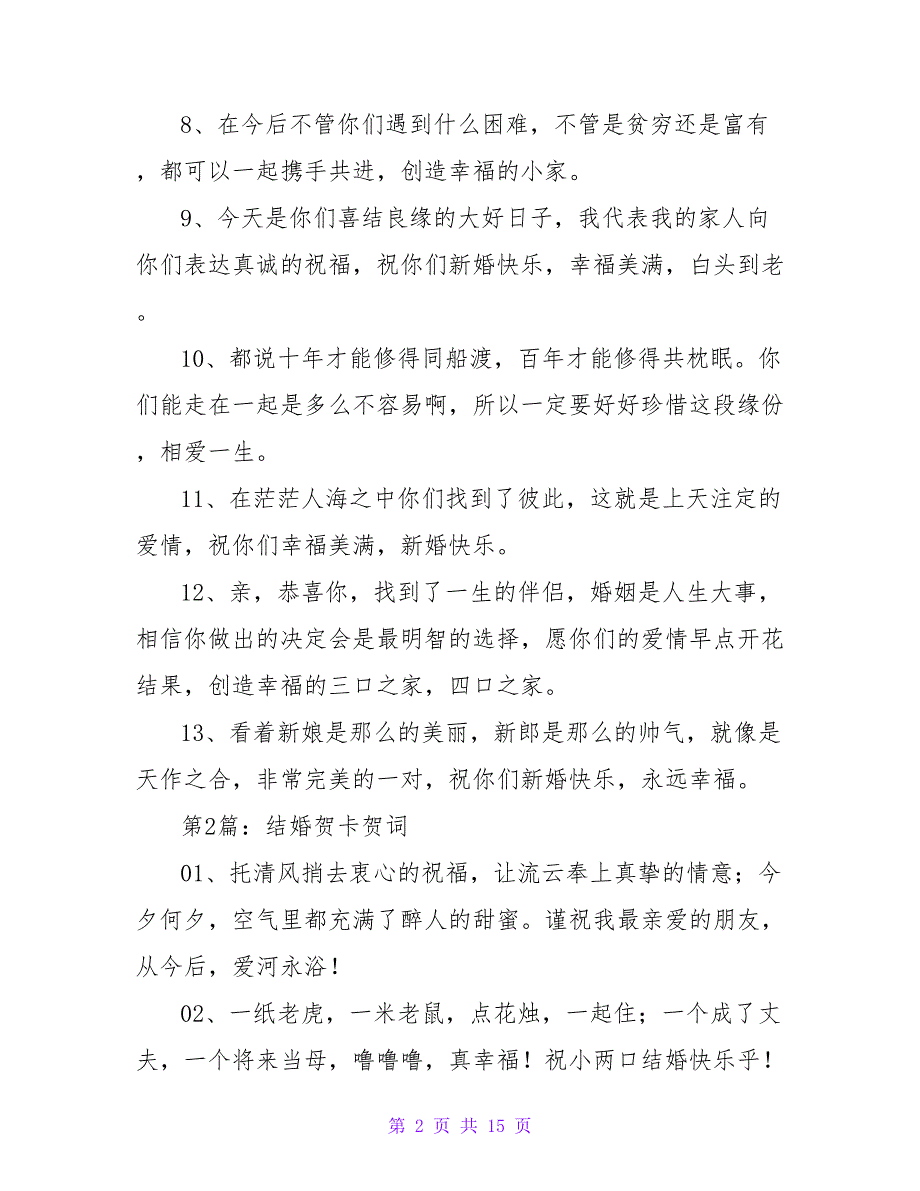 8、在今后不管你们遇到什么困难，不管是贫穷还是富有
，都可以一起携手共进，创造幸福的小家。
9、今天是你们喜结良缘的大好日子，我代表我的家人向
你们表达真诚的祝福，祝你们新婚快乐，幸福美满，白头到老
。
10、都说十年才能修得同船渡，百年才能修得共枕眠。你
们能走在一起是多么不容易啊，所以一定要好好珍惜这段缘份
，相爱一生。
11、在茫茫人海之中你们找到了彼此，这就是上天注定的
爱情，祝你们幸福美满，新婚快乐。
12、亲，恭喜你，找到了一生的伴侣，婚姻是人生大事，
相信你做出的决定会是最明智的选择，愿你们的爱情早点开花
结果，创造幸福的三口之家，四口之家。
13、看着新娘是那么的美丽，新郎是那么的帅气，就像是
天作之合，非常完美的一对，祝你们新婚快乐，永远幸福。
第2篇：结婚贺卡贺词
01、托清风捎去衷心的祝福，让流云奉上真挚的情意；今
夕何夕，空气里都充满了醉人的甜蜜。谨祝我最亲爱的朋友，
从今后，爱河永浴！
02、一纸老虎，一米老鼠，点花烛，一起住；一个成了丈
夫，一个将来当母，噜噜噜，真幸福！祝小两口结婚快乐乎！
第 2 页 共 15 页